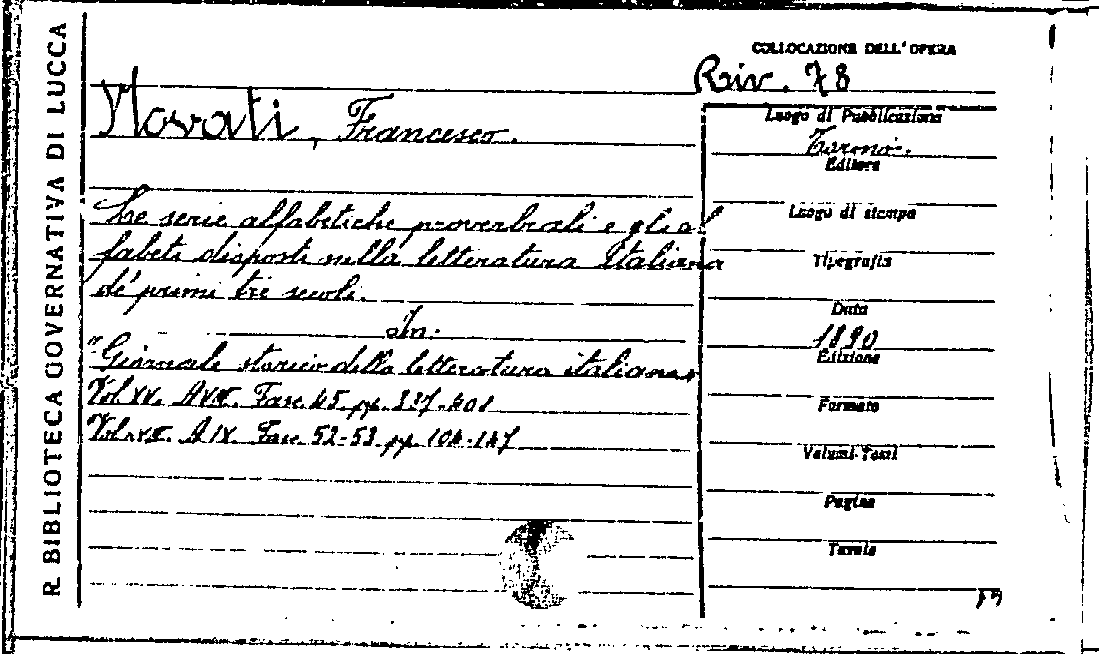 R. BIBLIOTECA GOVERNATIVA DI LUCCA
COLLOCAZIONE DELL'OPERA
Riv. 78
Novati, Francesco.
Le serie alfabetiche proverbiali e gli al
fabeti disposti nella letteratura Italiana
de' primi tre secoli.
In:
"Giornale storico della letteratura italiana"
Vol XV. A VIII. Fasc. 45. pp. 337-401
Vol. A IX. Fasc. 52-53 pp. 104-147
Luogo di Pubblicazione
Torino.
Editore
Luogo di stampa
Tipografia
Data
1890
Edizione
Formato
Volumi-Tomi
Pagine
Tavole